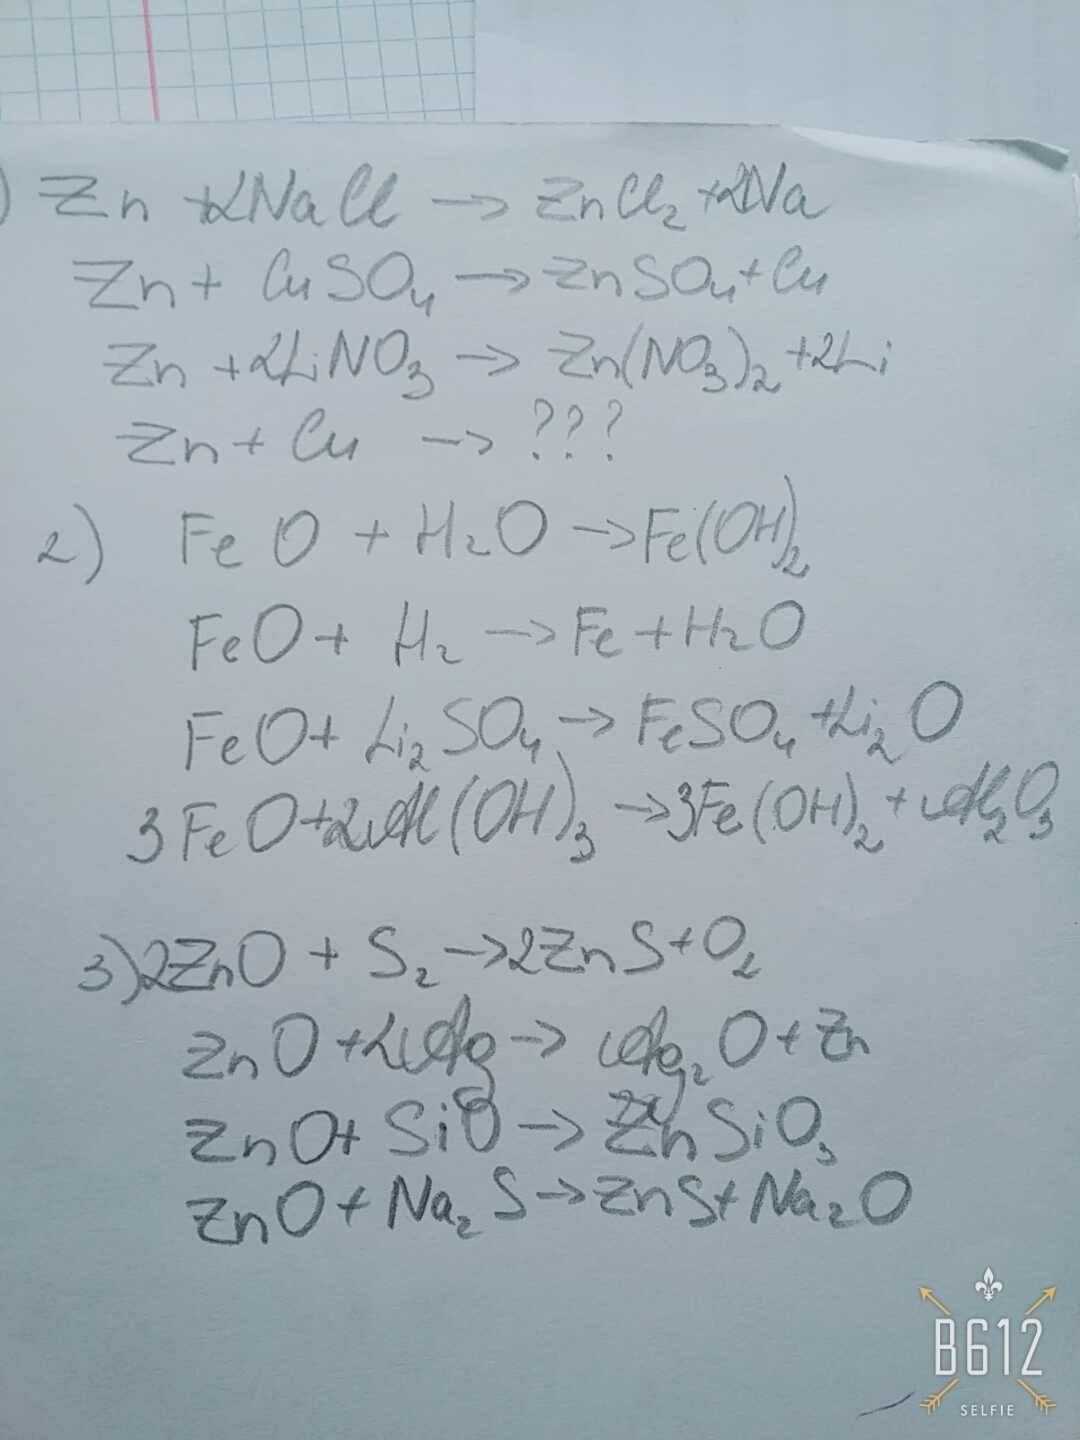 ) Zn +2NaCl → ZnCl₂ +2Na
Zn + CuSO₄ → ZnSO₄ + Cu
Zn +2LiNO₃ → Zn(NO₃)₂ +2Li
Zn + Cu → ???
2) FeO + H₂O → Fe(OH)₂
FeO + H₂ → Fe + H₂O
FeO + Li₂SO₄ → FeSO₄ + Li₂O
3FeO+2Al(OH)₃ → 3Fe(OH)₂ + Al₂O₃
3) 2ZnO + S₂ → 2ZnS + O₂
ZnO +2Ag → Ag₂O + Zn
ZnO + SiO → ZnSiO₃
ZnO + Na₂S → ZnS + Na₂O
B612
SELFIE